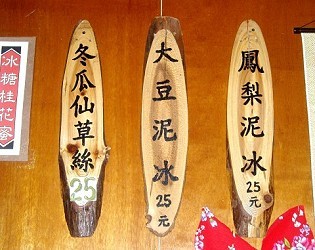 鳳梨泥冰
25元
大豆泥冰
25元
冬瓜仙草絲
25
冰糖桂花蜜